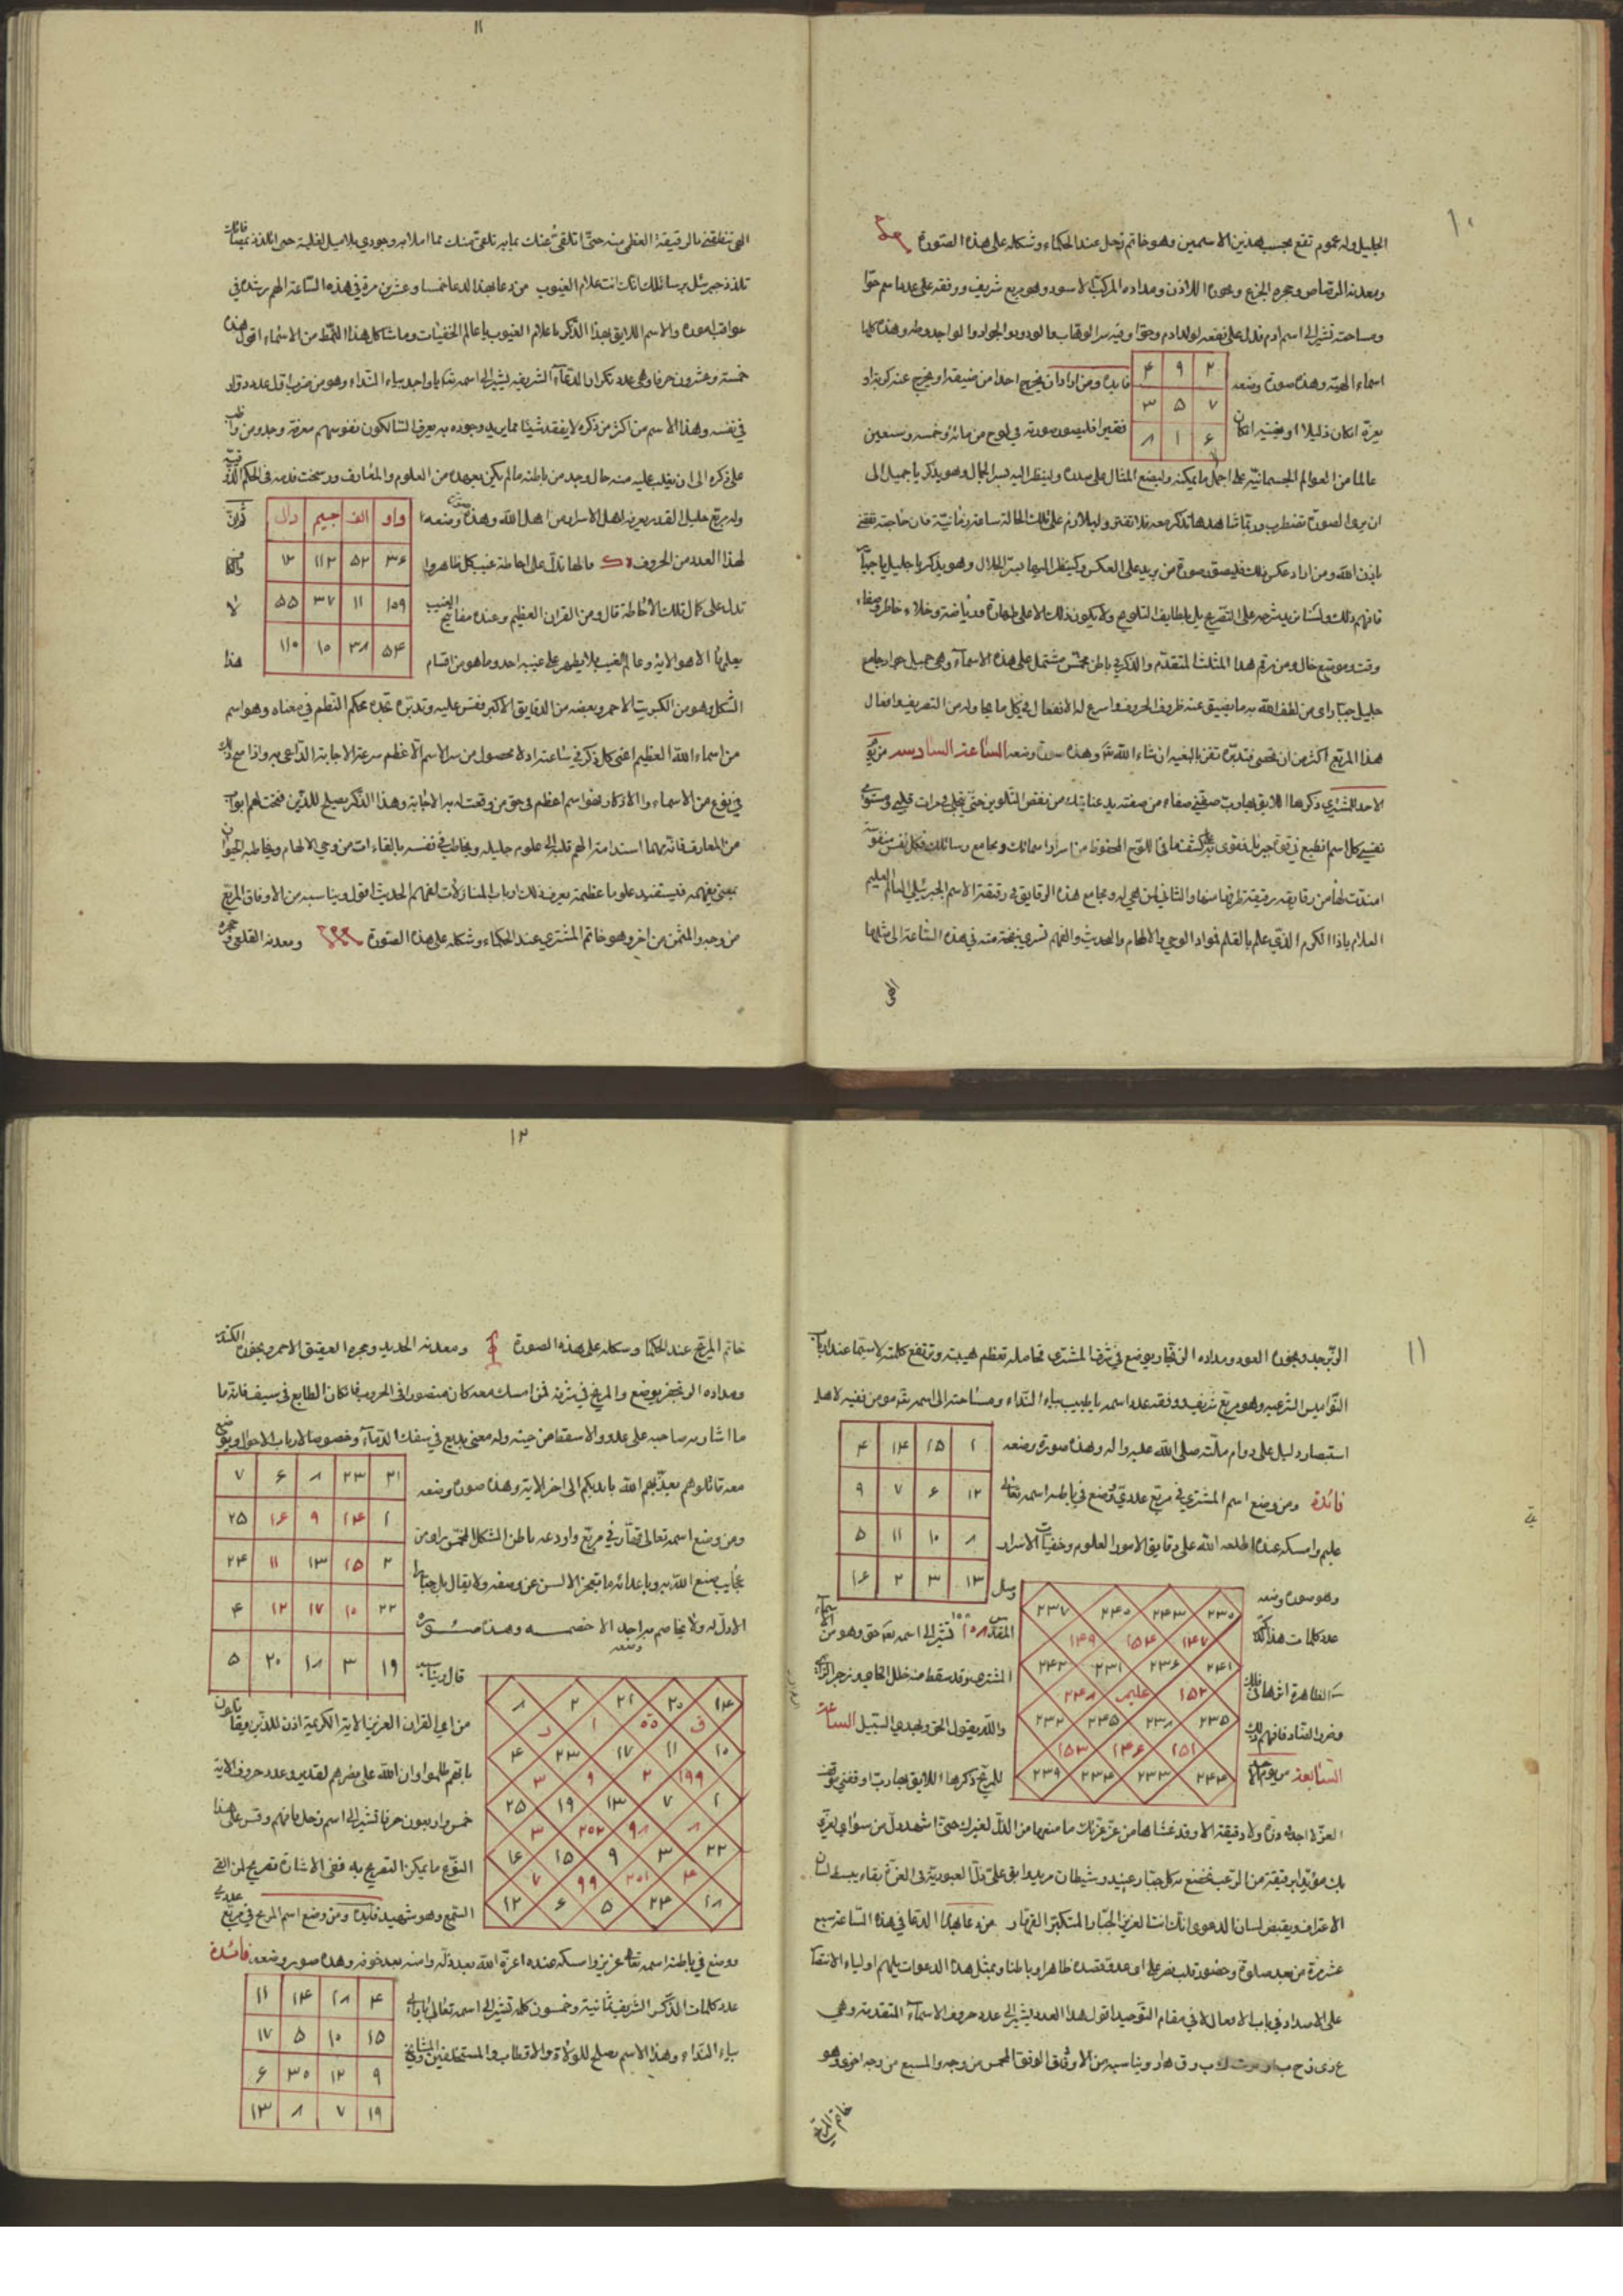 ١٠
الجليل وله عموم نفع بحسب هذين الاسمين وهو خاتم زحل عند الحكماء وشكله على هذه الصورة
ومعدنه الرصاص وحجره الجزع وبخوره اللاذن ومداده المركب الاسود وهو مربع شريف ووفقه على عدد اسم حوا
ومساحته تشير الى اسم ادم فدل على نفعه لولد ادم وحوا وفيه سر الوهاب والودود والجواد والواحد وطه وهذه كلها
اسماء الهية وهذه صورة وضعه
٤ ٩ ٢
٣ ٥ ٧
٨ ١ ٦
فايدة ومن اراد ان يخرج احدا من ضيقه او يخرج عنه كربة او
يعزه ان كان ذليلا او يغنيه ان كان فقيرا فليصور صورته في لوح من مائة وخمسة وسبعين
عالما من العوالم الجسمانية على اجمل ما يمكنه وليضع المثال على صدره ولينظر اليه بسر الجمال وهو يذكر يا جميل الى
ان يرى الصورة تضطرب وربما شاهدها تذكر معه فلا تفتر وليلازم على تلك الحالة ساعة زمانية فان حاجته تقضى
باذن الله ومن اراد عكس ذلك فليصور صورة من يريد على العكس ولينظر اليها بسر الجلال وهو يذكر يا جليل يا جبار
فافهم ذلك ولسنا نريد شرحه على التصريح بل بلطايف التلويح ولا يكون ذلك الا على طهارة ورياضة وخلاء خاطر وصفاء
وقت وموضع خال ومن رقم هذا المثلث المتقدم والذكر في باطن مخمس مشتمل على هذه الاسماء وهي جميل جواد جامع
جليل جبار راى من لطف الله به ما يضيق عنه ظروف الحروف واسرع له الانفعال في كل ما يحاوله من التصريف وافعال
هذا المربع اكثر من ان تحصى فتدبره تفز بالبغية ان شاء الله تعالى وهذه صورة وضعه الساعة السادسة من يوم
الاحد للمشتري ذكرها اللايق بها رب صفني صفاء من صفته يد عنايتك من نقص التلوين حتى يتجلى في مرات قلبي ومستوى
نفسي كل اسم انطبع في قوة جبريل فقوى به على كشف ما في اللوح المحفوظ من اسرار اسمائك ومجامع رسائلك فكل نفس منفوسة
امتدت لها من رقايقه رقيقة طرفها منها والثاني لمن هي له ومجامع هذه الرقايق في رقيقة الاسم الجبرئيلي العالم العليم
العلام يا ذا الكرم الذي علم بالقلم فمواد الوحي والالهام والحديث والفهم تسري بنفخة منه في هذه الساعة الى مثلها
الهي
١١
الهي تنطقني بالرقيقة العظمى منه حتى اتلقى عنك بما به تلقى منك مما املا به وجودي بلا ميل لغلبة حتى اتلذذ بمصافاتك
تلذذ جبرئيل برسائلك انك انت علام الغيوب من دعا بهذا الدعا خمسا وعشرين مرة في هذه الساعة الهم رشده في
عواقب اموره والاسم اللايق بهذا الذكر يا علام الغيوب يا عالم الخفيات وما شاكل هذا النمط من الاسماء اقول هذه
خمسة وعشرون حرفا وهي عدد تكرار الدعاء الشريف يشير الى اسمه تعالى يا واحد بياء النداء وهو من ضرب اول عدد دوار
في نفسه وهذا الاسم من اكثر من ذكره لا يفقد شيئا مما يريد وجوده به يعرف السالكون نفوسهم معرفة وجد ومن واظب
على ذكره الى ان يغلب عليه منه حال وجد من باطنه ما لم يكن يعهده من العلوم والمعارف ورسخت قدمه في الحكم الذوقية
وله مربع جليل القدر يعرفه اهل الاسرار من اهل الله وهذه صورة وضعه
واو الف جيم دال
٣٦ ٥٢ ١١٢ ١٢
١٥٩ ١١ ٣٧ ٥٥
٥٤ ٣٨ ١٠ ١١٠
لهذا العدد من الحروف ما لها تدل على احاطة غيب كل ظاهر
تدل على كمال تلك الاحاطة قال ومن القران العظيم وعنده مفاتيح الغيب لا
يعلمها الا هو الاية وعالم الغيب فلا يظهر على غيبه احد وما هو من اقسام هذا
الشكل وهو من الكبريت الاحمر وبعضه من الدقايق الاكبر فقس عليه وتدبره تجده محكم النظم في معناه وهو اسم
من اسماء الله العظيم اعني كل ذكر في ساعة اذ لا محصول من سر الاسم الاعظم سرعة الاجابة الداعي به واذا صح ذلك
في نوع من الاسماء والاذكار فهو اسم اعظم في حق من وقعت له به الاجابة وهذا الذكر يصلح للذين فتحت لهم ابواب
من المعارف فانه مهما استدامه الهم قلبه الى علوم جليلة ويخاطب في نفسه بالقاءات من وحي الالهام ويخاطبه الحيوان
بمعنى يفهمه فيستفيد علوما عظيمة يعرف ذلك ارباب المنازلات لفهم الحديث اقول ويناسبه من الاوفاق المربع
من وجه والمثمن من اخر وهو خاتم المشتري عند الحكماء وشكله على هذه الصورة ومعدنه القلعي وحجره
١١
الزبرجد وبخوره العود ومداده الزنجار يوضع في شرف المشتري تحامله تعظم هيبته وترتفع كلمته لا سيما عند ارباب
النواميس الشرعية وهو مربع شريف ووفقه عدد اسمه يا طبيب بياء النداء ومساحته الى اسمه تعالى مومن ففيه لاهل
استبصار دليل على دوام ملته صلى الله عليه واله وهذه صورة وضعه
٤ ١٤ ١٥ ١
٩ ٧ ٦ ١٢
٥ ١١ ١٠ ٨
١٦ ٢ ٣ ١٣
فائدة ومن وضع اسم المشتري في مربع عددي ووضع في باطنه اسمه تعالى
عليم وامسكه عنده اطلعه الله على دقايق الامور العلوم وخفيات الاسرار
وهو صورة وضعه
٢٣٧ ٢٤٠ ٢٤٣ ٢٣٠
١٤٩ ١٥٤ ١٤٧
٢٤٢ ٢٣١ ٢٣٦ ٢٤١
٢٤٨ عليم ١٥٢
٢٣٢ ٢٤٥ ٢٣٨ ٢٣٥
١٥٣ ١٤٦ ١٥١
٢٣٩ ٢٣٤ ٢٣٣ ٢٤٤
عدد كلمات هذا الذكر
تشير الى اسمه تعالى حق وهو من
والله يقول الحق ويهدي السبيل الساعة
السابعة من يوم الاحد للمريخ ذكرها اللايق بها رب اوقفني موقف
العز لا اجد في ذرة ولا دقيقة الا وقد غشاها من عز عزتك ما منعها من الذل لغيرك حتى اشهد ذل من سواي لعزتي
بك مؤيدا برقيقة من الرعب تخضع بها كل جبار عنيد وشيطان مريد وابق علي ذل العبودية في العزة بقاء يبسط لسان
الاعتراف ويقبض لسان الدعوى انك انت العزيز الجبار المتكبر القهار من دعا بهذا الدعا في هذه الساعة سبع
عشر مرة من بعد صلوة وحضور قلب نصر على اي عدو قصده ظاهرا وباطنا وبمثل هذه الدعوات يلهم اولياء الانتقام
على الاسداد في باب الافعال لا في مقام التوحيد اقول هذا العدد يشير الى عدد حروف الاسماء المتقدمة وهي
ويناسبه من الاوفاق الوفق المخمس من وجه والمسبع من وجه اخر وهو
خاتم المريخ
١٢
خاتم المريخ عند الحكما وشكله على هذه الصورة ومعدنه الحديد وحجره العقيق الاحمر وبخوره الكندر
ومداده الزنجفر يوضع والمريخ في شرفه فمن امسك معه كان منصورا في الحروب فان كان الطابع في سيف فانه ما
ما اشار به صاحبه على عدو الا سقط من حينه وله معنى بديع في سفك الدماء وخصوصا لارباب الاحوال ويوضع
معه قاتلوهم يعذبهم الله بايديكم الى اخر الاية وهذه صورة وضعه
٧ ٦ ٨ ٢٣ ٢١
٢٥ ١٦ ٩ ١٤ ١
٢٤ ١١ ١٣ ١٥ ٢
٤ ١٢ ١٧ ١٠ ٢٢
٥ ٢٠ ١٨ ٣ ١٩
ومن وضع اسمه تعالى قهار في مربع واودعه باطن الشكل المخمس راى من
عجايب صنع الله به وباعدائه ما تعجز الالسن عن وصفه ولا يقابل به جبارا
الا ذل له ولا يخاصم به احد الا خصمه وهذه صورة وضعه
١٤ ٢٠ ٢١ ٢ ٨
١٠ ١١ ١٧ ٢٣ ٤
١ ٧ ١٣ ١٩ ٢٥
٢٢ ٣ ٩ ١٥ ١٦
١٨ ٢٤ ٥ ٦ ١٢
قال ويناسبه
من اي القران العزيز الاية الكريمة اذن للذين يقاتلون
بانهم ظلموا وان الله على نصرهم لقدير وعدد حروف الاية
خمس واربعون حرفا تشير الى اسم زحل فافهم وقس على هذا
النوع ما يمكن التصريح به ففي الاشارة تصريح لمن القى
السمع وهو شهيد فايدة ومن وضع اسم المريخ في مربع عددي
ووضع في باطنه اسمه تعالى عزيز وامسكه عنده اعزه الله بعد ذله وامنه بعد خوفه وهذه صورة وضعه فائدة
١١ ١٤ ١٨ ٤
١٧ ٥ ١٠ ١٥
٦ ٣٠ ١٢ ٩
١٣ ٨ ٧ ١٩
عدد كلمات الذكر الشريف ثمانية وخمسون كلمة تشير الى اسمه تعالى يا والي
بياء النداء وهذا الاسم يصلح للولاة والاقطاب والمستخلفين